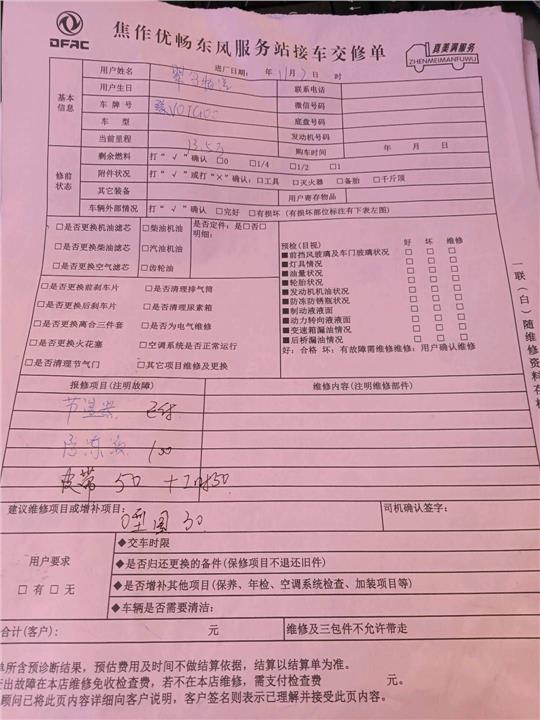 DFAC
焦作优畅东风服务站接车交修单
真美满服务
ZHENMEIMANFUWU
基本信息
用户姓名 进厂日期： 年 1月 7日 时
用户生日 联系电话
车牌号 微信号码
车型 底盘号码
发动机号码
当前里程 13.5万 购车时间 年 月 日
修前状态
剩余燃料 打“√”确认 □0 □1/4 □1/2 □1
附件状况 打“√”或打“×”确认：□工具 □灭火器 □备胎 □千斤顶
其它装备 用户寄存物品
车辆外部情况 打“√”确认 □完好 □有损坏（有损坏部位标注有下表左图）
□是否更换机油滤芯 □柴油机油 是否定件：是□否□
明细：
□是否更换柴油滤芯 □汽油机油
□是否更换空气滤芯 □齿轮油
□是否更换前刹车片 □是否清理排气筒
□是否更换后刹车片 □是否清理尿素箱
□是否更换离合三件套 □是否为电气维修
□是否更换火花塞 □空调系统是否正常运行
□是否清理节气门 □其它项目维修及更换
预检(目视) 好 坏 维修
■前挡风玻璃及车门玻璃状况 □ □ □
■灯具情况 □ □ □
■油量状况 □ □ □
■轮胎状况 □ □ □
■发动机机油状况 □ □ □
■防冻防锈瓶状况 □ □ □
■制动液液面 □ □ □
■动力转向液液面 □ □ □
■变速箱漏油情况 □ □ □
■后桥漏油情况 □ □ □
好：合格 坏：有故障需维修维修：用户确认维修
一联（白）随维修资料存档
报修项目(注明故障) 维修内容(注明维修部件)
节温器
防冻液 100
皮带 50
建议维修项目或增补项目： 司机确认签字：
O型圈 30
用户要求
□有□无
◆交车时限
◆是否归还更换的备件(保修项目不退还旧件)
◆是否增补其他项目(保养、年检、空调系统检查、加装项目等)
◆车辆是否需要清洁：
合计(客户)： 元 维修及三包件不允许带走
单所含预诊断结果，预估费用及时间不做结算依据，结算以结算单为准。
出故障在本店维修免收检查费，若不在本店维修，需支付检查费 元。
顾问已将此页内容详细向客户说明，客户签名则表示已理解并接受此页内容。